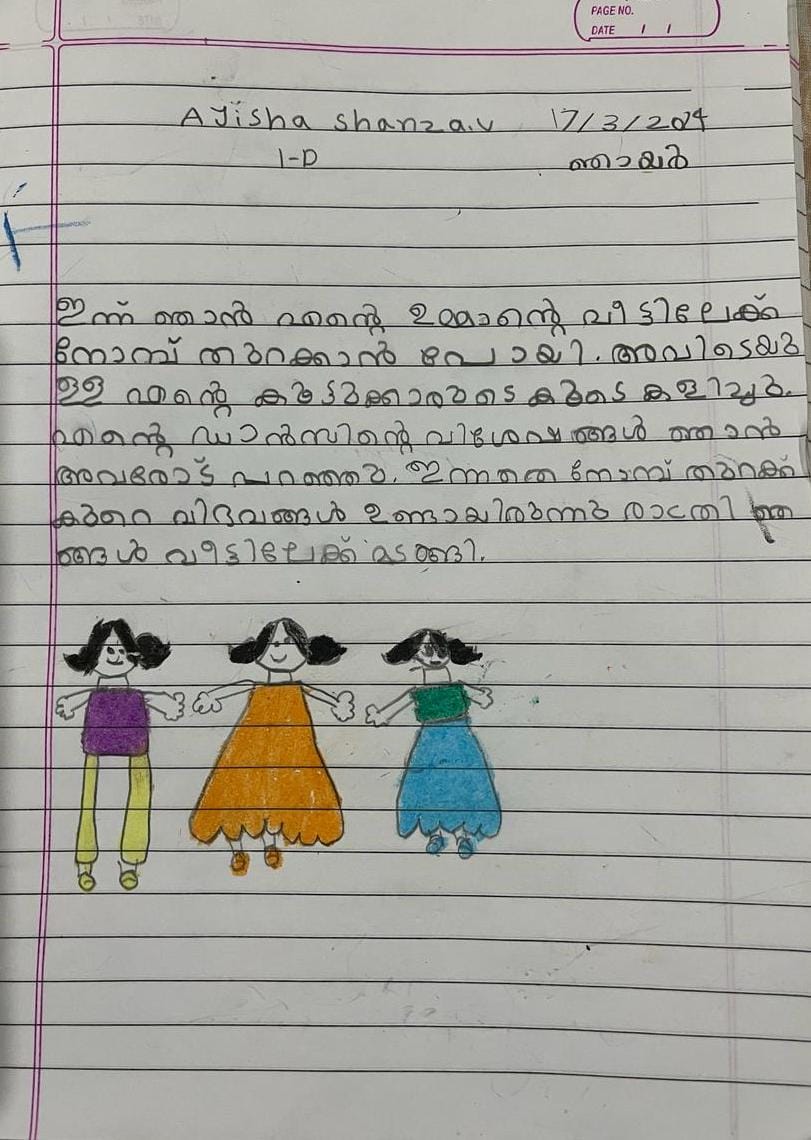 PAGE NO.
DATE / /
Ayisha Shanza.V 17/3/2024
1-D ഞായർ
ഇന്ന് ഞാൻ എന്റെ ഉമ്മാന്റെ വീട്ടിലേക്ക്
നോമ്പ് തുറക്കാൻ പോയി. അവിടെയു
ള്ള എന്റെ കൂട്ടുക്കാരുടെ കൂടെ കളിച്ചു.
എന്റെ ഡാൻസിന്റെ വിശേഷങ്ങൾ ഞാൻ
അവരോട് പറഞ്ഞു. ഇന്നത്തെ നോമ്പ് തുറക്ക്
കുറെ വിഭവങ്ങൾ ഉണ്ടായിരുന്നു രാത്രി ഞ
ങ്ങൾ വീട്ടിലേക്ക് മടങ്ങി.